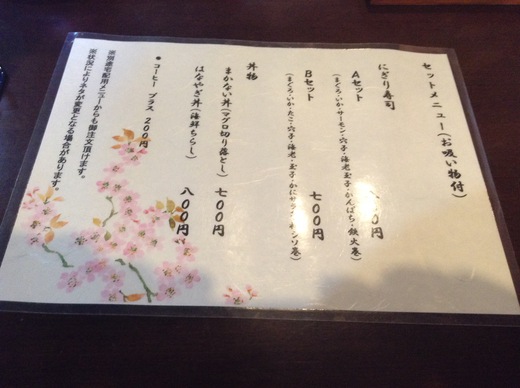 セットメニュー(お吸い物付)
にぎり寿司
Aセット 円
(まぐろ・いか・サーモン・穴子・海老・玉子・かんぱち・鉄火巻)
Bセット 七00円
(まぐろ・いか・たこ・穴子・海老・玉子・かに 巻)
丼物
まかない丼(マグロ切り落とし) 七00円
はなやぎ丼(海鮮ちらし) 八00円
● コーヒー プラス 200円
※別途宅配用メニューからも御注文頂けます。
※状況によりネタが変更となる場合があります。